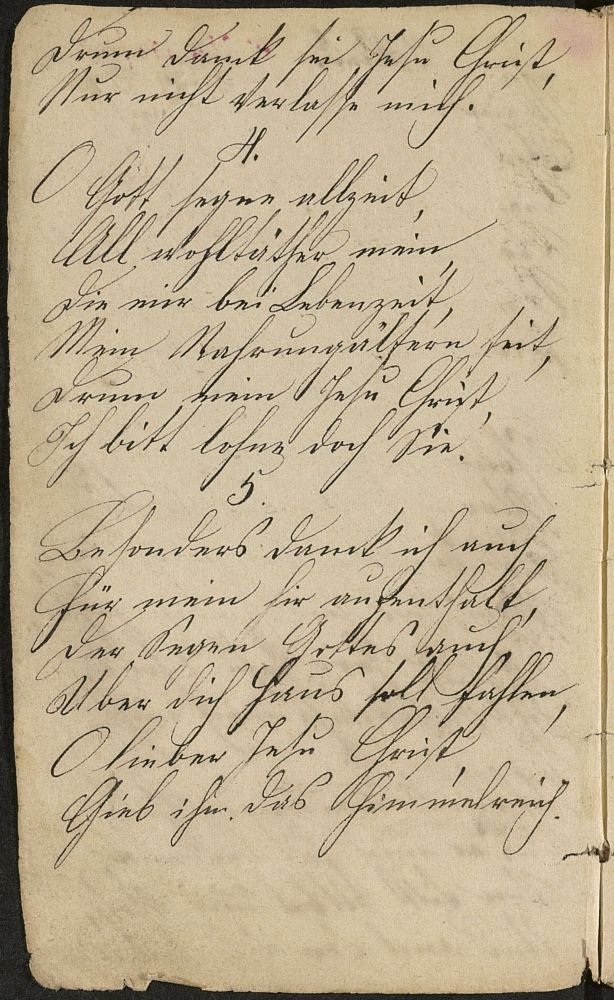 Drum Danck sei Jesu Christ,
Nur nicht verlasse mich.
4.
O Gott segne allzeit,
All wohltäther mein,
Die mir bei Lebenzeit,
Mein Nahrungältern seit,
Drum mein Jesu Christ,
Ich bitt lohne doch Sie.
5.
Besonders Danck ich auch
Für mein hir aufenthalt,
Der Segen Gottes auch,
Über dich Haus soll fahlen,
O lieber Jesu Christ,
Gieb ihm das Himmelreich.